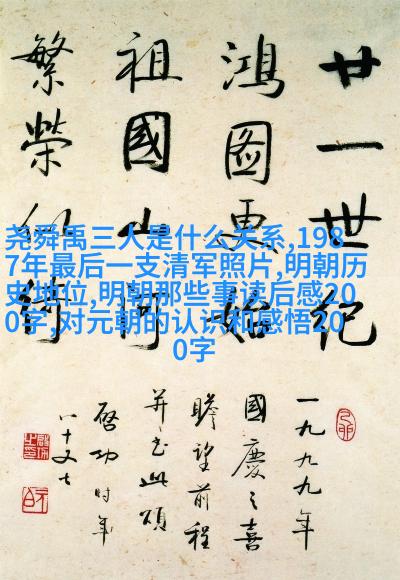 廿一世纪
鸿圖更始
祖國山河
繁榮似
尧舜禹三人是什么关系,198
7年最后一支清军照片,明朝历
史地位,明朝那些事读后感20
0字,对元朝的认识和感悟20
0字
一九九九年
國慶之喜
瞻望前程
并书此頌
啓功时年
八十又七